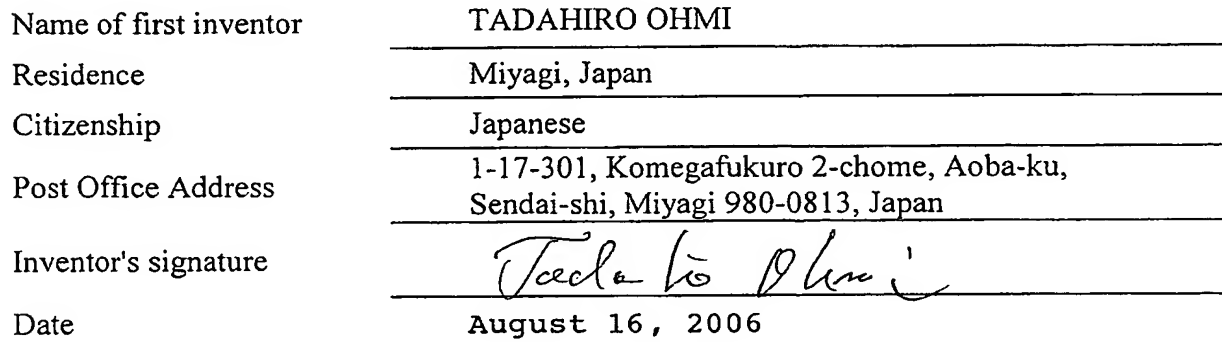 Name of first inventor TADAHIRO OHMI
Residence Miyagi, Japan
Citizenship Japanese
Post Office Address 1-17-301, Komegafukuro 2-chome, Aoba-ku,
Sendai-shi, Miyagi 980-0813, Japan
Inventor's signature Tadahiro Ohmi
Date August 16, 2006